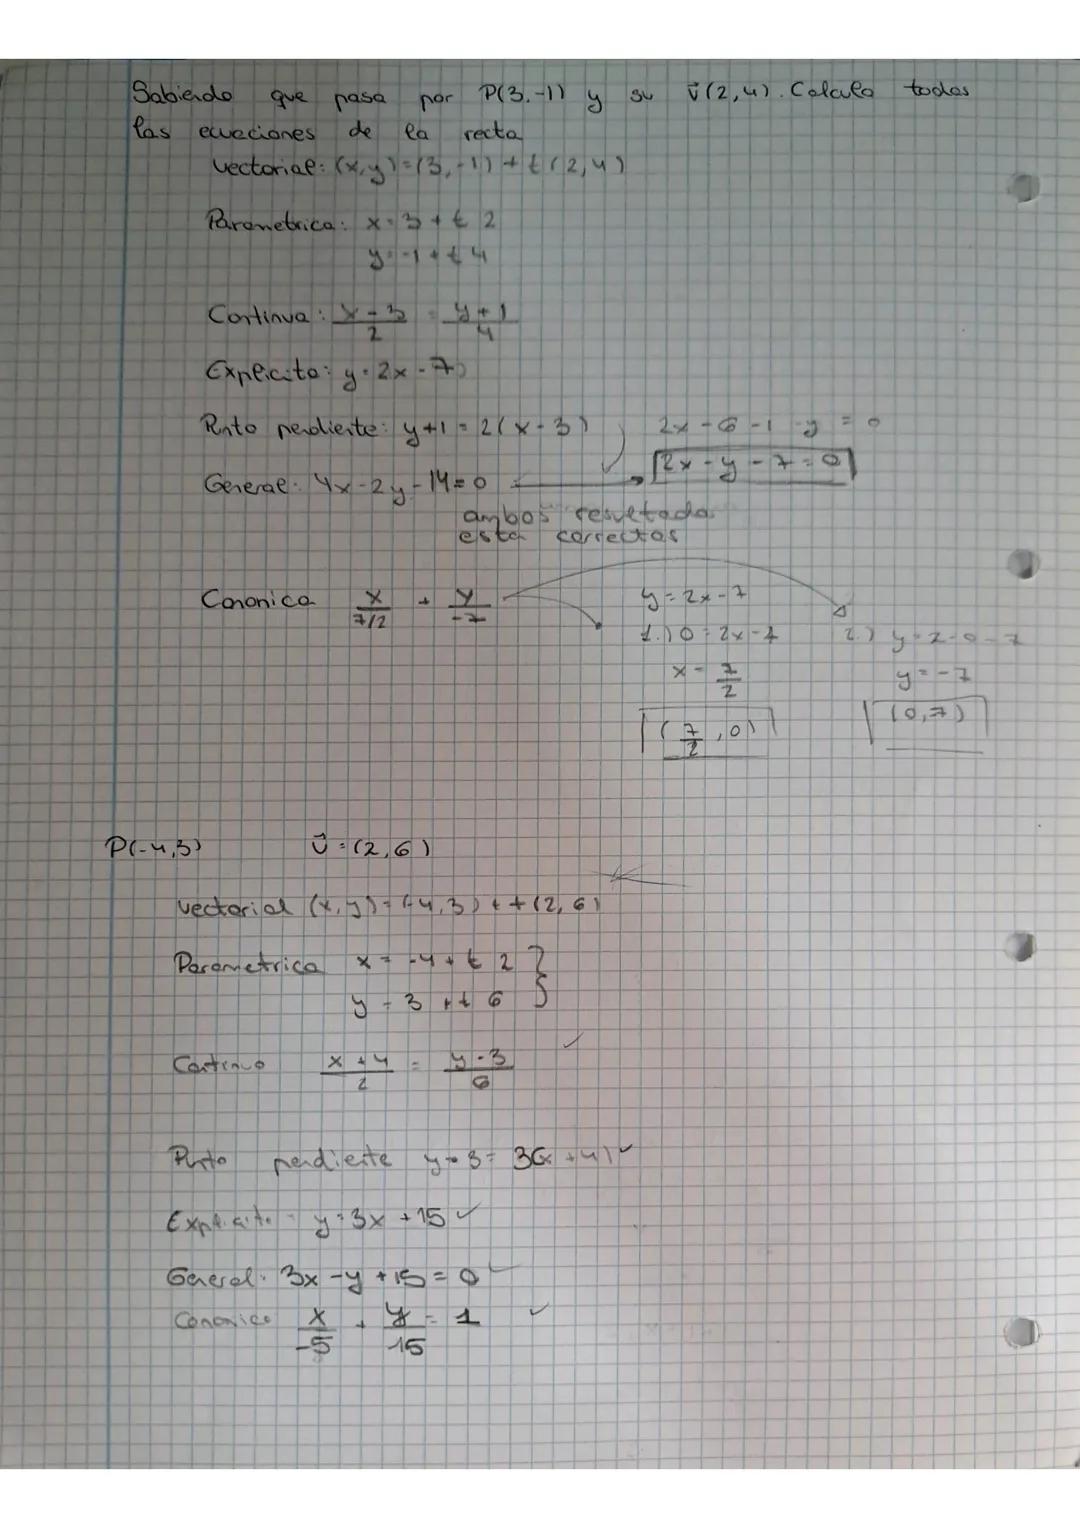 Sabiendo que pasa por P(3,-1) y su v⃗(2,4). Calcula todas
las ecuaciones de la recta
vectorial: (x,y)=(3,-1)+t(2,4)
Parametrica: x=3+t 2
y=-1+t4
Continua: x-3/2 = y+1/4
Explicita: y=2x-7
Punto pendiente: y+1=2(x-3) 2x-6-1-y=0
2x-y-7=0
General: 4x-2y-14=0
ambos resultado
esta correctos
Canonica x/7/2 + y/-7
y=2x-7
1.) 0=2x-7 2.) y=2·0-7
x=7/2 y=-7
(7/2,0) (0,7)
P(-4,3) v⃗=(2,6)
vectorial (x,y)=(-4,3)+t(2,6)
Parametrica x=-4+t 2 }
y=3+t 6
Continuo x+4/2 = y-3/6 ✓
Punto pendiente y-3=3(x+4) ✓
Explicita y=3x+15 ✓
General: 3x-y+15=0 ✓
Canonica x/-5 + y/15 = 1 ✓